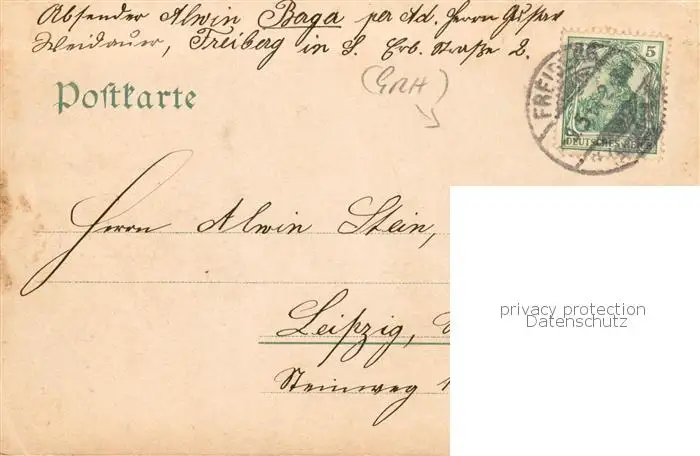 Absender Alwin Baga per Ad. Herrn Gustav
Weidauer, Freiberg in S. Erb. Straße 2.
Postkarte
(GRH)
5
FREIBERG
DEUTSCHES REICH
Herrn Alwin Stein,
privacy protection
Datenschutz
Leipzig,
Steinweg 1